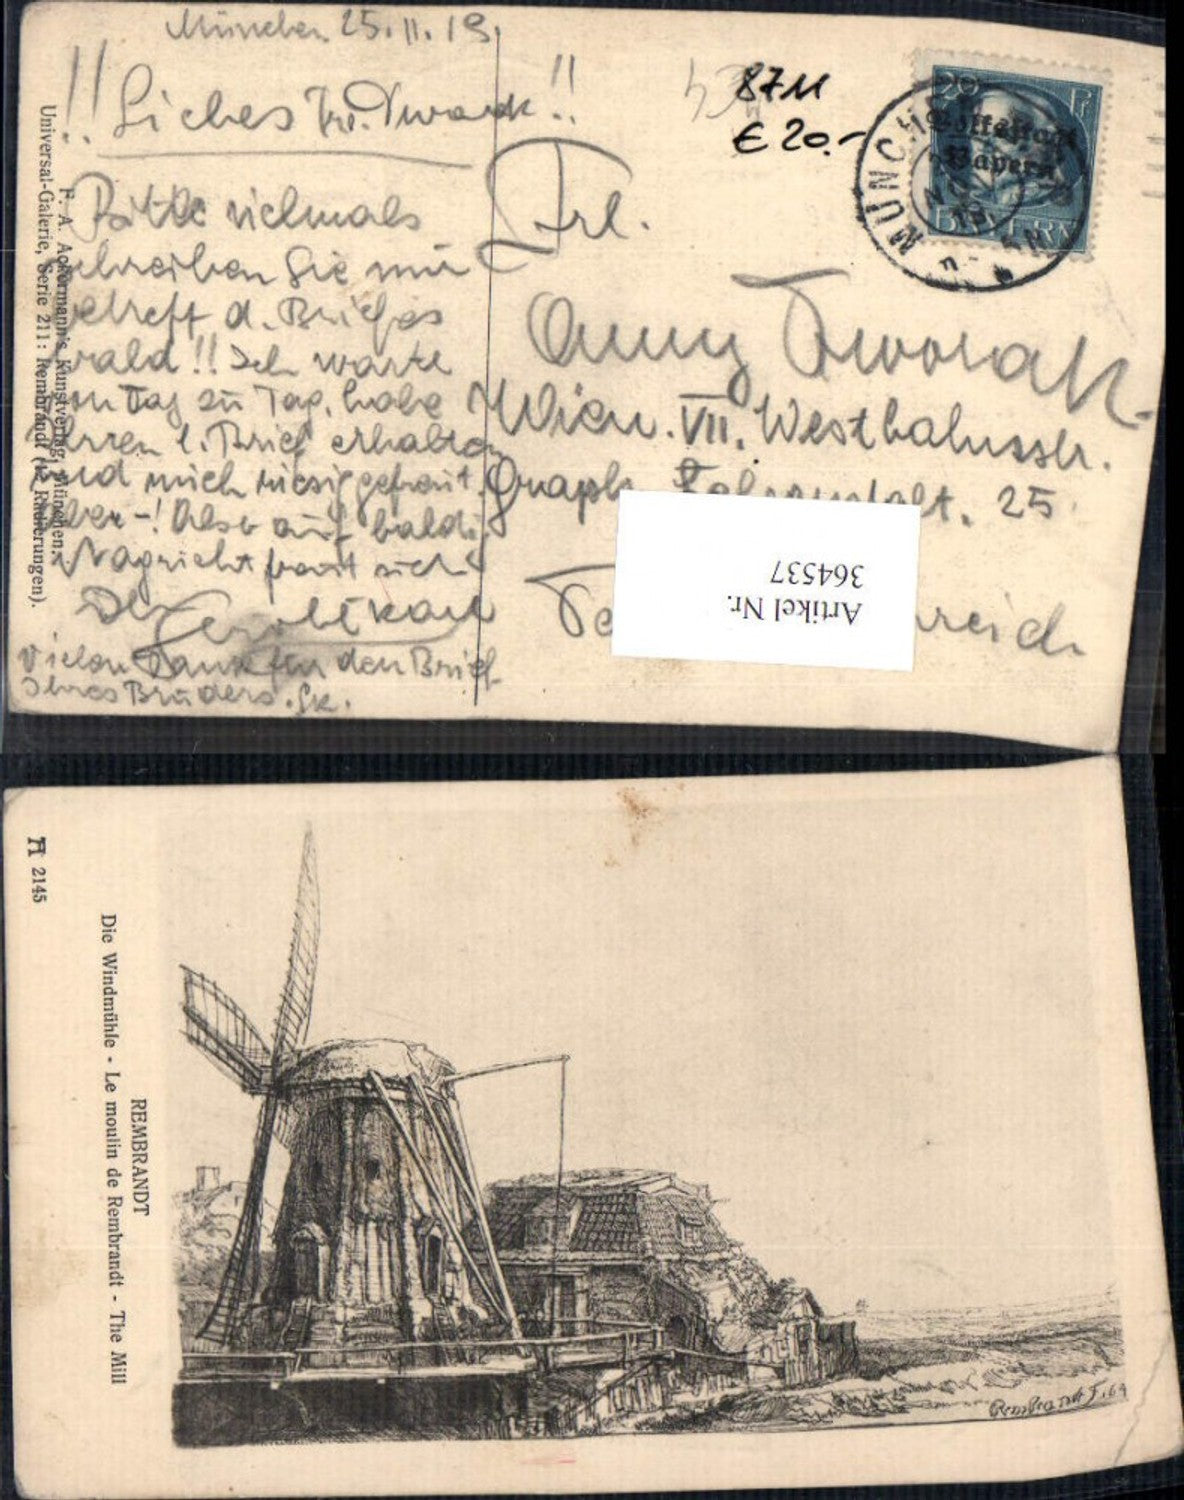 München 25.11.19.
!! Liebes Frl. Dworak !!
Bitte vielmals
schreiben Sie mir
betreff d. Briefes
bald!! Ich warte
von Tag zu Tag, habe
Ihren l. Brief erhalten
und mich riesig gefreut.
aber-! Also auf baldi.
Nagricht freut sich
Der
Vielen Dank für den Brief
Ihres Bruders.
F. A. Ackermann's Kunstverlag, München.
Universal-Galerie, Serie 211: Rembrandt (12 Radierungen).
8711
€ 20.-
20 Pf
Volksstaat
Bayern
BAYERN
MÜNCHEN
Frl.
Anny Dworak
Wien. VII. Westbahnstr.
Graph. 25
Artikel Nr.
364537
reich
2145
REMBRANDT
Die Windmühle - Le moulin de Rembrandt - The Mill
Rembrandt F. 164